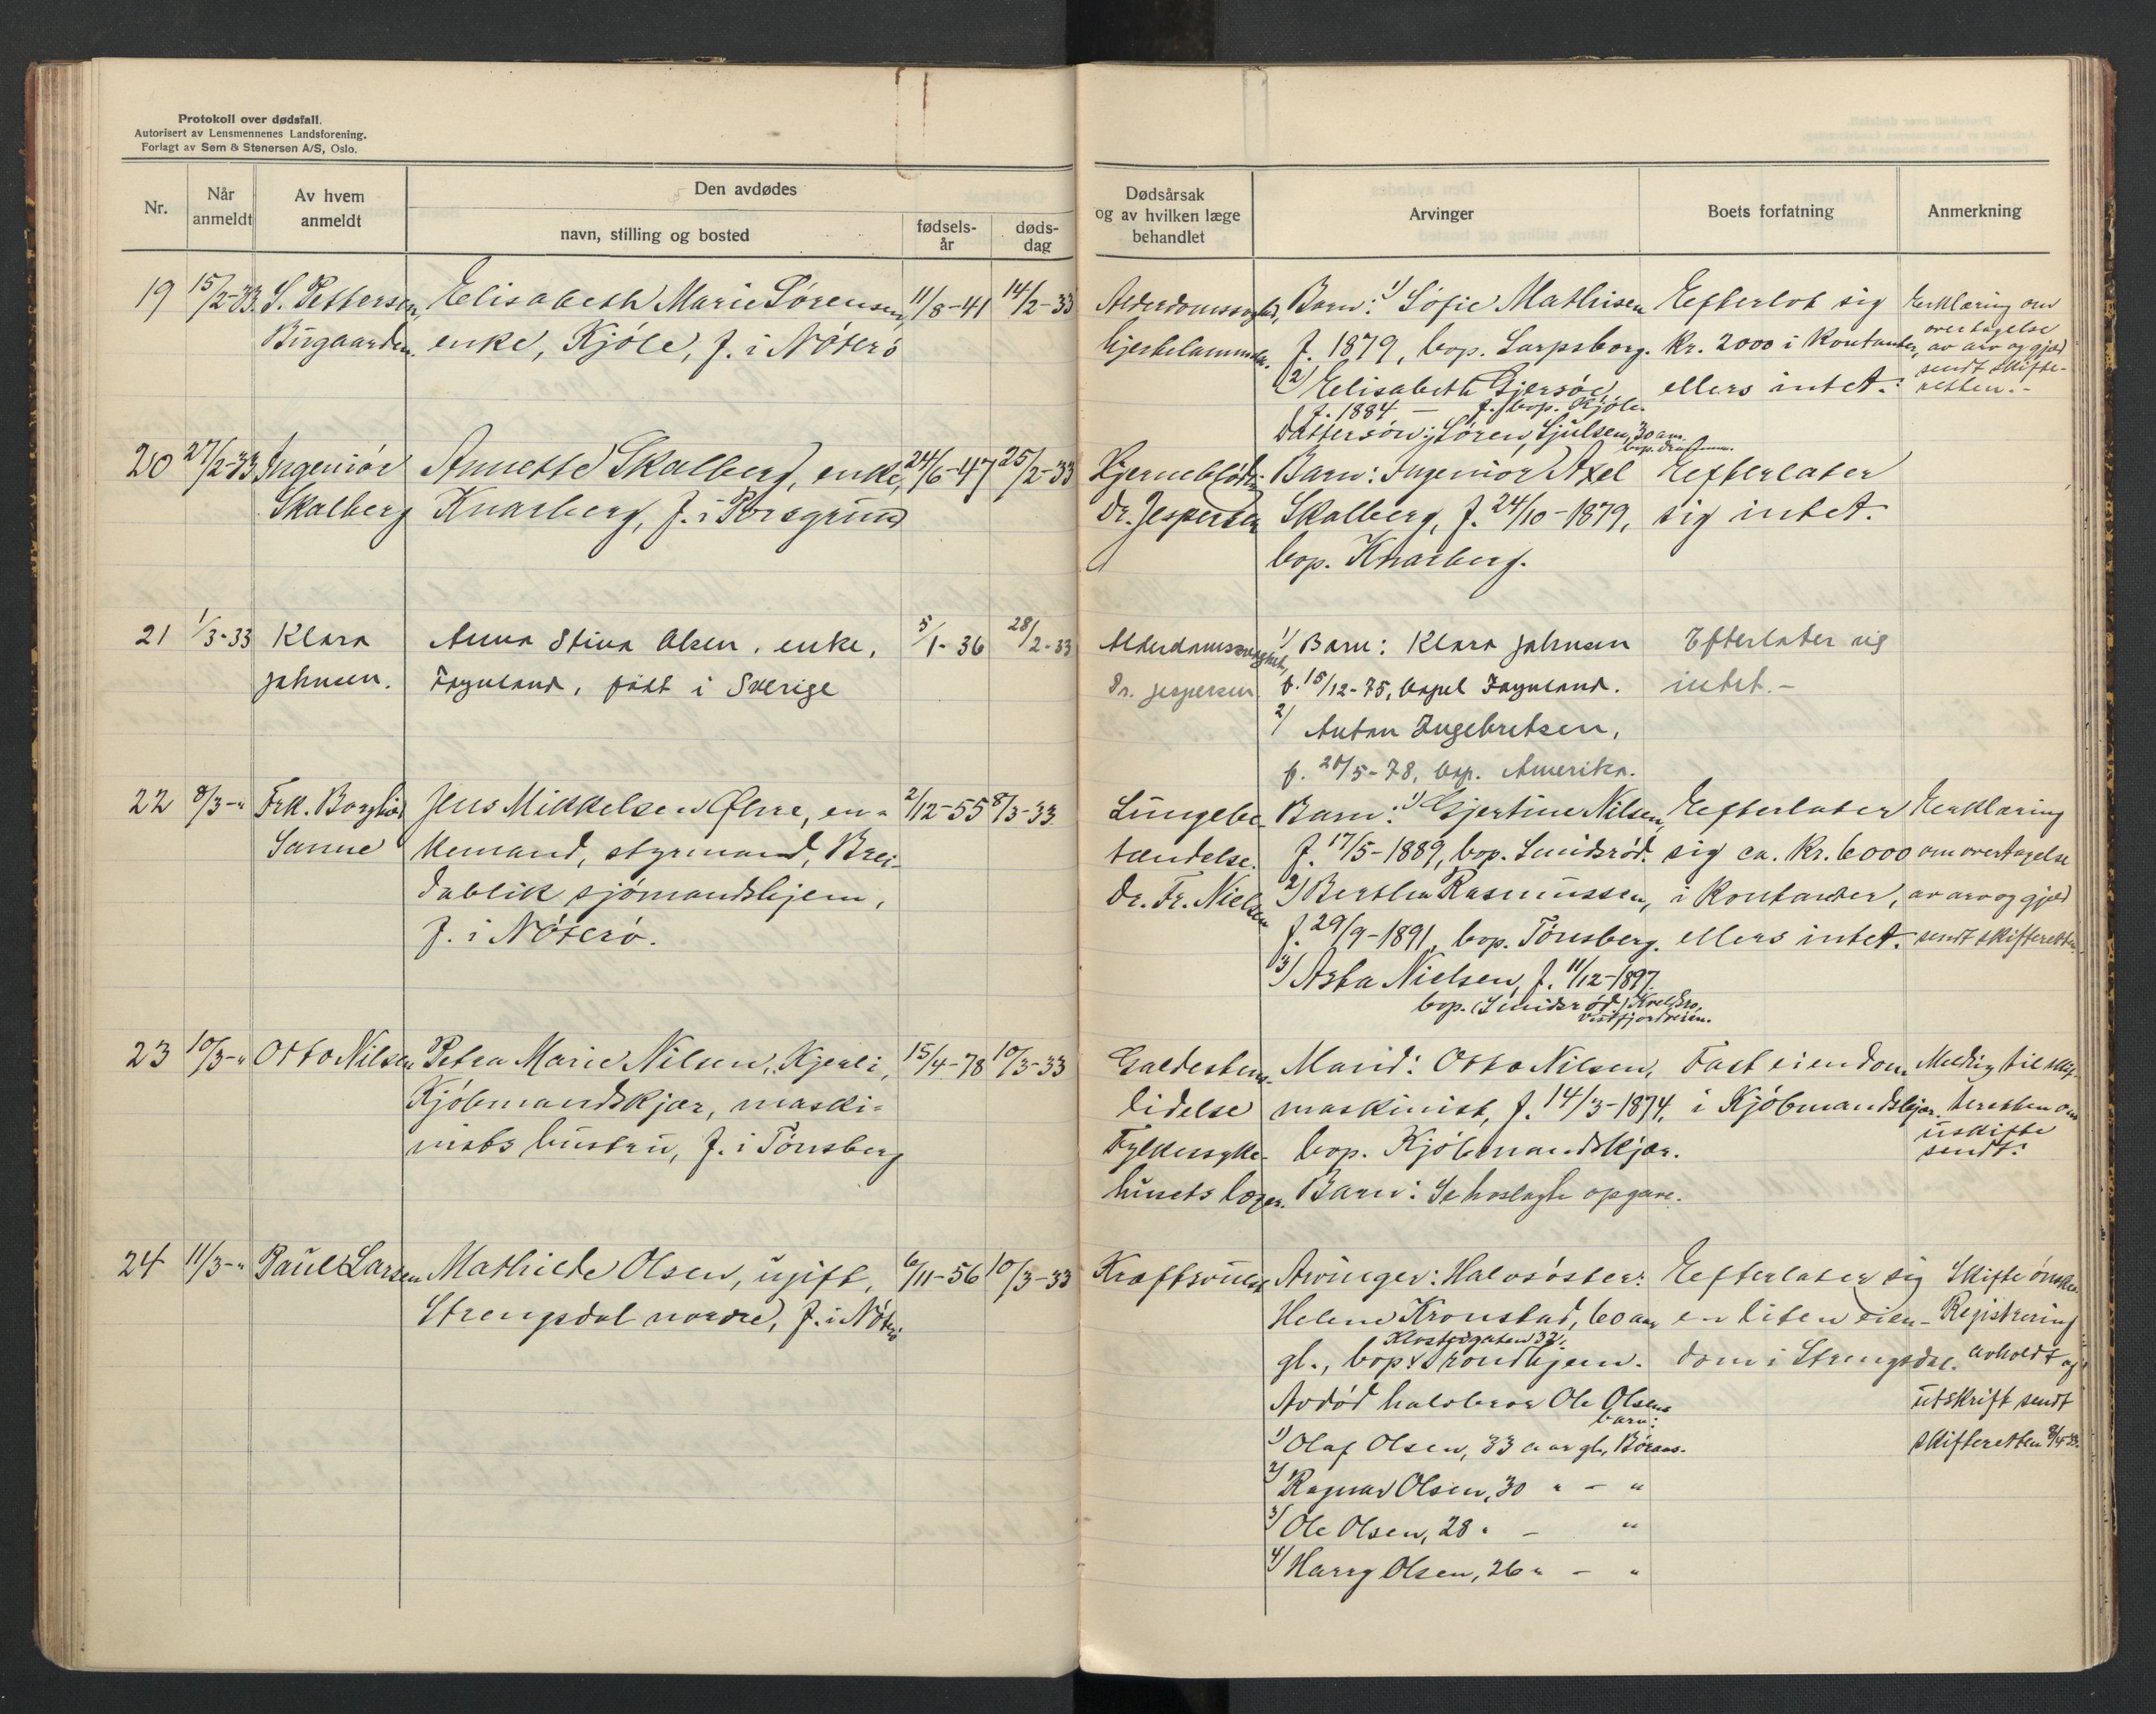 Protokoll over dødsfall.
Autorisert av Lensmennenes Landsforening.
Forlagt av Sem & Stenersen A/S, Oslo.
Nr.
Når anmeldt
Av hvem anmeldt
Den avdødes
navn, stilling og bosted
fødselsår
dødsdag
Dødsårsak og av hvilken læge behandlet
Arvinger
Boets forfatning
Anmerkning
19
15/2-33.
S. Pettersen,
Burgaarden.
Elisabeth Marie Sørensen,
enke, Kjøle, f. i Nøterö
11/8-41
14/2-33
hjertelammelse.
Barn: 1) Sofie Mathisen
f. 1879, bop. Sarpsborg.
2) Elisabeth Gjersøe
f. 1884 — bop. Kjøle.
Dattersøn: Søren Sjulsen, 30 aar.
Efterlot sig
kr. 2000 i kontanter,
ellers intet.
Erklæring om
overtagelse
av arv og gjæld
sendt skifte-
retten.-
20
27/2-33
Ingeniør
Skalberg
Annette Skalberg, enke,
Knarberg, f. i Porsgrund
24/6-47
25/2-33
Dr. Jespersen
Barn: Ingeniør Axel
Skalberg, f. 24/10-1879,
bop. Knarberg.
Efterlater
sig intet.
21
1/3-33
Klara
Johnsen.
Anna Stina Olsen, enke,
født i Sverige
5/1-36
28/2-33
Alderdomssvaghet,
Dr. Jespersen.
1) Barn: Klara Johnsen
f. 15/12-75,
2)
Anton Ingebretsen,
f. 20/5-78, bop. Amerika.
Efterlater sig
intet.-
22
8/3-"
Frk. Borghild
Sanne
Jens Mikkelsen Øhre, en-
kemand, styrmand, Brei-
dablik sjømandshjem,
f. i Nøterö.
2/12-55
8/3-33
Lungebe-
tændelse.
Dr. Fr. Nielsen
Barn: 1) Gjertine Nilsen,
f. 17/5-1889, bop. Smidsrød.
2) Bertha Rasmussen,
f. 29/9-1891, bop. Tönsberg.
3) Asta Nielsen, f. 11/12-1897.
bop. (Smidsrød)
Efterlater
sig ca. kr. 6000
i kontanter,
ellers intet.
Erklæring
om overtagelse
av arv og gjæld
sendt skifteretten
23
10/3-"
Otto Nilsen
Petra Marie Nilsen, Kjerli,
Kjöbmandskjær, maski-
nists hustru, f. i Tönsberg
15/4-78
10/3-33
Galdestens-
lidelse
Fylkessyke-
husets læger.
Mand: Otto Nilsen,
maskinist, f. 14/3-1874,
bop. Kjöbmandskjær.
Barn: Se hoslagte opgave.
Fast eiendom
i Kjöbmandskjær.
Melding til skif-
teretten om
uskifte
sendt.
24
11/3-"
Paul Larsen
Mathilde Olsen, ugift,
Strengsdal nordre, f. i Nøterö
6/11-56
10/3-33
Kræftsvulst
Arvinger: Halvsøster:
Helene Kronstad, 60 aar
gl., bop. Trondhjem.
Avdød halvbror Ole Olsens
barn:
1) Olaf Olsen, 33 aar gl.,
2) Ragnar Olsen, 30 " - "
3) Ole Olsen, 28 " - "
4) Harry Olsen, 26 " - "
Efterlater sig
en liten eien-
dom i Strengsdal.
Skifte ønskes.
Registrering
avholdt og
utskrift sendt
skifteretten 8/4-33.